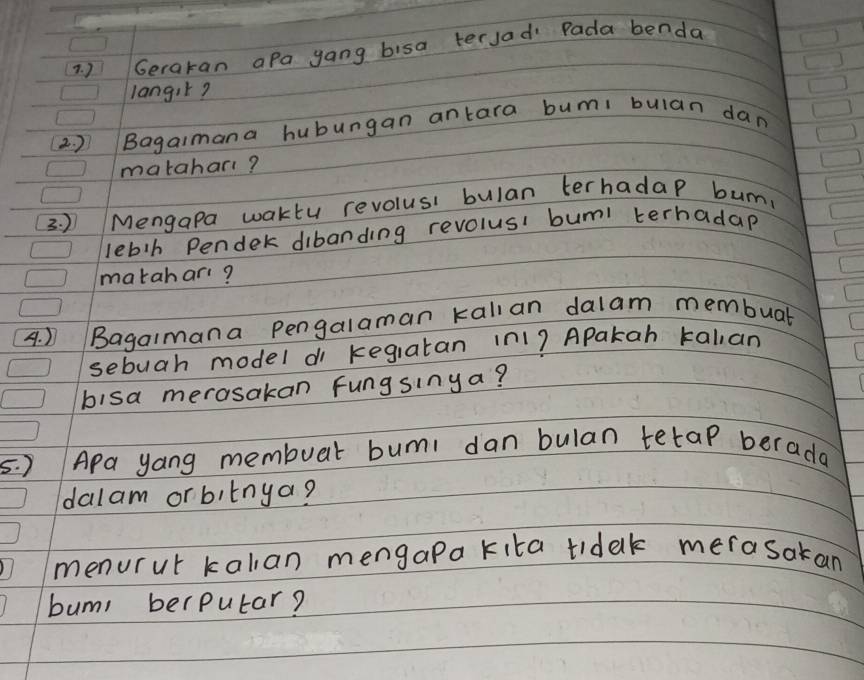 1.) Gerakan apa yang bisa terjadi Pada benda
langit?
2.) Bagaimana hubungan antara bumi bulan dan
matahari?
3.) Mengapa waktu revolusi bulan terhadap bumi
lebih Pendek dibanding revolusi bumi terhadap
matahari?
4.) Bagaimana Pengalaman kalian dalam membuat
sebuah model di kegiatan ini? Apakah kalian
bisa merasakan fungsinya?
5.) Apa yang membuat bumi dan bulan tetap berada
dalam orbitnya?
menurut kalian mengapa kita tidak merasakan
bumi berputar?